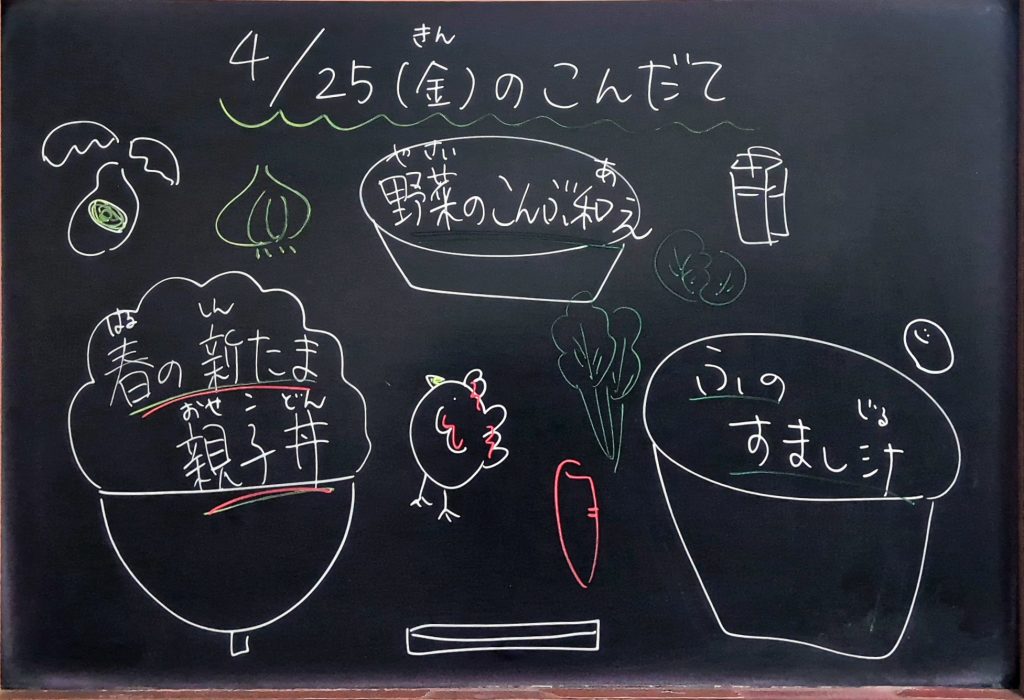 きん
4/25(金)のこんだて
やさい あ
野菜のこんぶ和え
はる しん
春の新たま
おやこどん
親子丼
ふの
じる
すまし汁